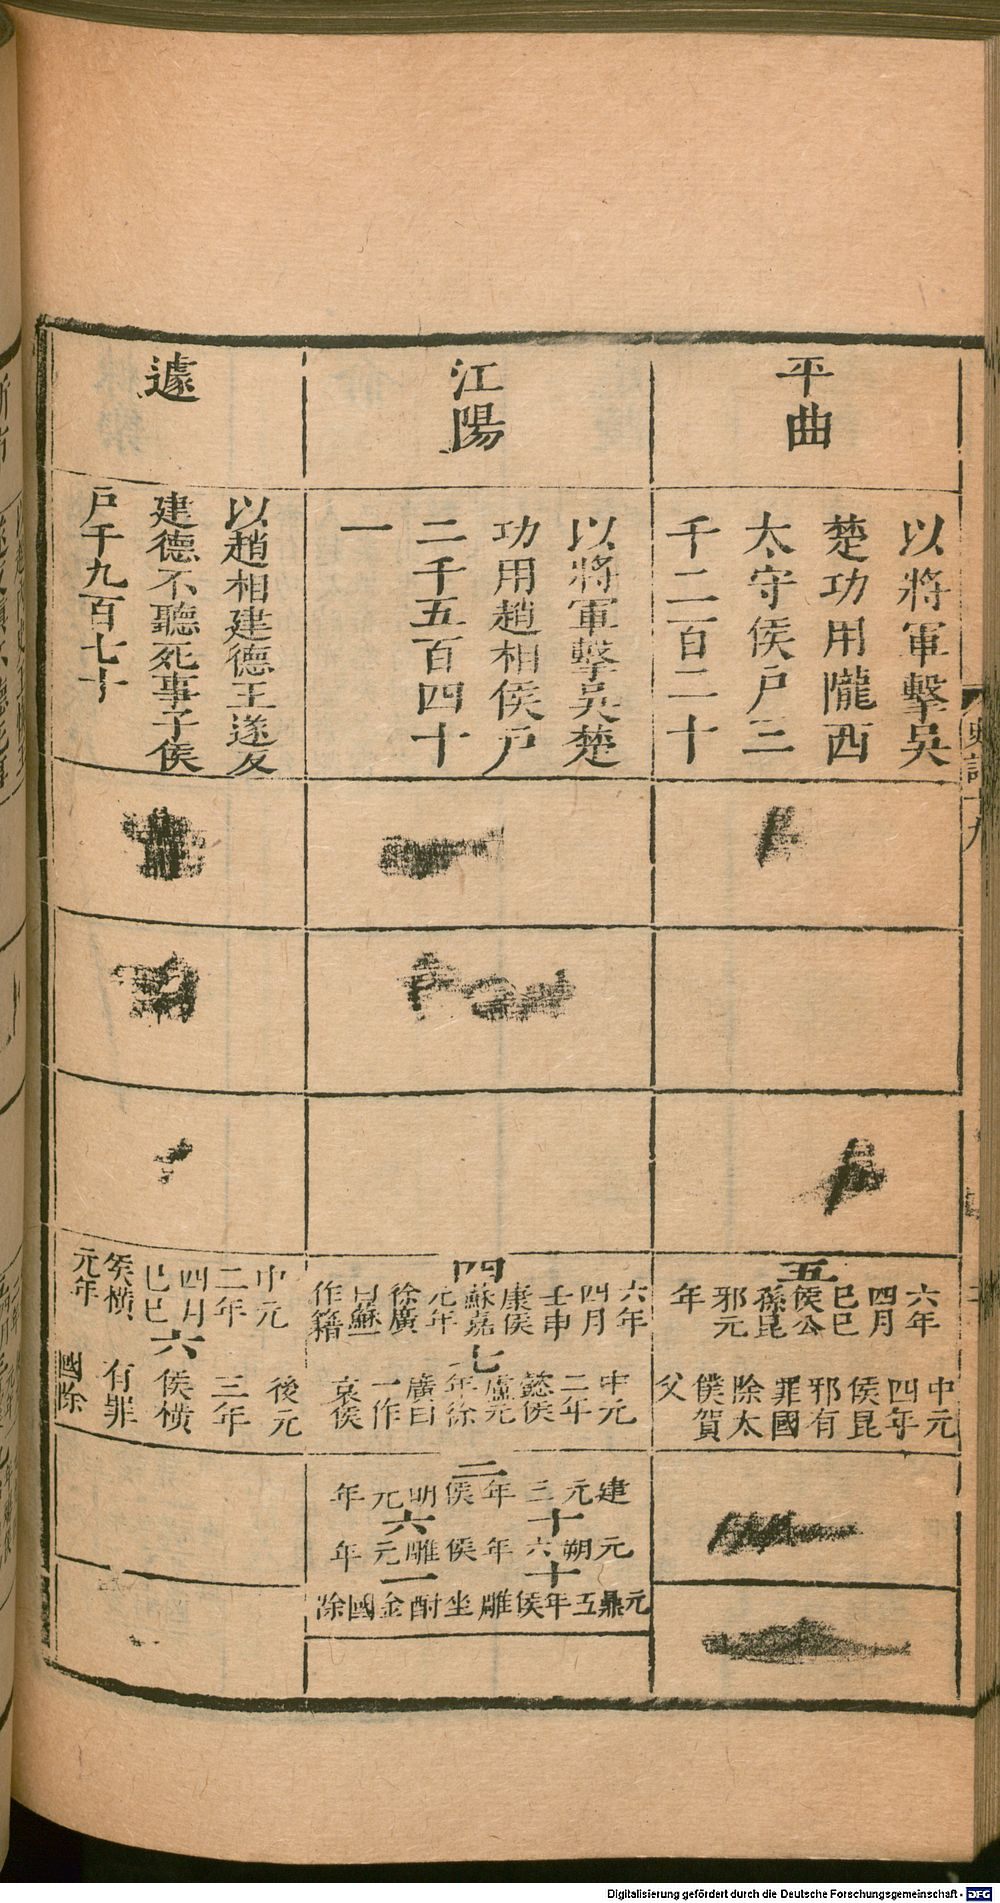 平曲
以將軍擊吳
楚功用隴西
太守侯戶三
千二百二十
五
六年
四月
巳巳
侯公
孫昆
邪元
年
中元
四年
侯昆
邪有
罪國
除太
僕賀
父
江陽
以將軍擊吳楚
功用趙相侯戶
二千五百四十
一
四
六年
四月
壬申
康侯
蘇嘉
元年
徐廣
曰蘇
一作
籍
七
中元
二年
懿侯
盧元
年徐
廣曰
一作
哀侯
二
建元三年侯明元年
十六
元朔六年侯雕元年
十一
元鼎五年侯雕坐酎金國除
遽
以趙相建德王遂反
建德不聽死事子侯
戶千九百七十
六
中元
二年
四月
巳巳
侯橫
元年
後元
三年
侯橫
有罪
國除
史記十九
Digitalisierung gefördert durch die Deutsche Forschungsgemeinschaft - DFG